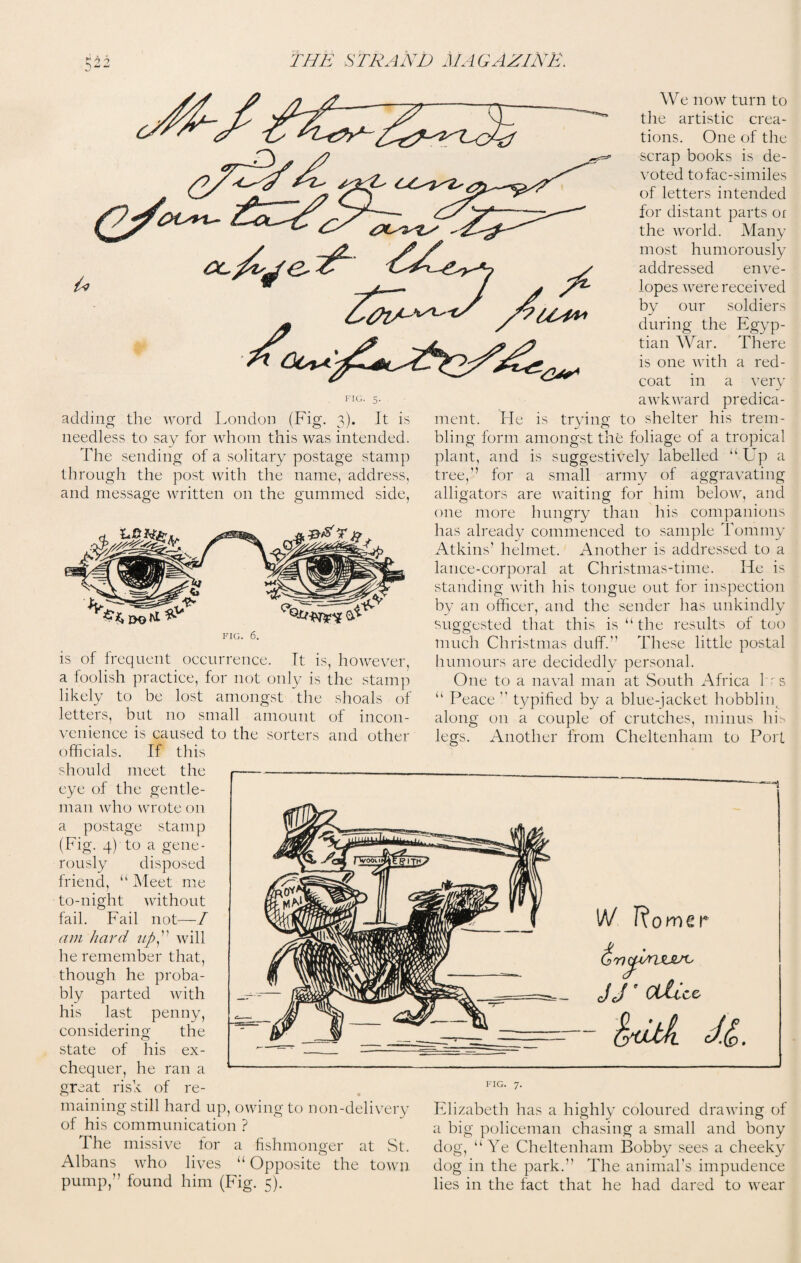 522
THE STRAND MAGAZINE.
Town pump
FIG. 5.
adding the word London (Fig. 3). It is
needless to say for whom this was intended.
The sending of a solitary postage stamp
through the post with the name, address,
and message written on the gummed side,
FIG. 6.
is of frequent occurrence. It is, however,
a foolish practice, for not only is the stamp
likely to be lost amongst the shoals of
letters, but no small amount of incon-
venience is caused to the sorters and other
officials. If this
should meet the
eye of the gentle-
man who wrote on
a postage stamp
(Fig. 4) to a gene-
rously disposed
friend, “Meet me
to-night without
fail. Fail not—I
am hard up,” will
he remember that,
though he proba-
bly parted with
his last penny,
considering the
state of his ex-
chequer, he ran a
great risk of re-
maining still hard up, owing to non-delivery
of his communication ?
The missive for a fishmonger at St.
Albans who lives “Opposite the town
pump,” found him (Fig. 5).
We now turn to
the artistic crea-
tions. One of the
scrap books is de-
voted to fac-similes
of letters intended
for distant parts of
the world. Many
most humorously
addressed enve-
lopes were received
by our soldiers
during the Egyp-
tian War. There
is one with a red-
coat in a very
awkward predica-
ment. He is trying to shelter his trem-
bling form amongst the foliage of a tropical
plant, and is suggestively labelled “Up a
tree,” for a small army of aggravating
alligators are waiting for him below, and
one more hungry than his companions
has already commenced to sample Tommy
Atkins’ helmet. Another is addressed to a
lance-corporal at Christmas-time. He is
standing with his tongue out for inspection
by an officer, and the sender has unkindly
suggested that this is “the results of too
much Christmas duff.” These little postal
humours are decidedly personal.
One to a naval man at South Africa
“Peace” typified by a blue-jacket
along on a couple of crutches, minus his
legs. Another from Cheltenham to Port
ROYAL
MAIL
W Romer
JJ' Alice
Erith
FIG. 7.
Elizabeth has a highly coloured drawing of
a big policeman chasing a small and bony
dog, “Ye Cheltenham Bobby sees a cheeky
dog in the park.” The animal’s impudence
lies in the fact that he had dared to wear